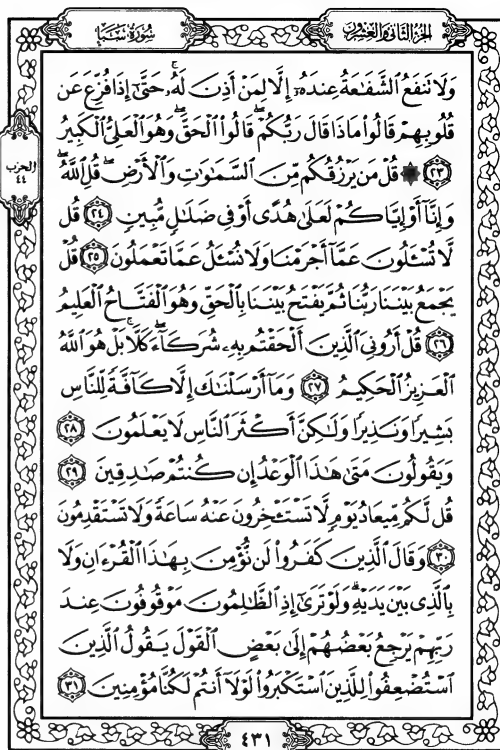 سُورَةُ سَبَإٍ
الجُزْءُ الثَّانِي وَالعِشْرُونَ
وَلَا تَنفَعُ ٱلشَّفَٰعَةُ عِندَهُۥٓ إِلَّا لِمَنْ أَذِنَ لَهُۥ ۚ حَتَّىٰٓ إِذَا فُزِّعَ عَن
قُلُوبِهِمْ قَالُوا۟ مَاذَا قَالَ رَبُّكُمْ ۖ قَالُوا۟ ٱلْحَقَّ ۖ وَهُوَ ٱلْعَلِىُّ ٱلْكَبِيرُ
٢٣ ۞ قُلْ مَن يَرْزُقُكُم مِّنَ ٱلسَّمَٰوَٰتِ وَٱلْأَرْضِ ۖ قُلِ ٱللَّهُ ۖ
وَإِنَّآ أَوْ إِيَّاكُمْ لَعَلَىٰ هُدًى أَوْ فِى ضَلَٰلٍ مُّبِينٍ ٢٤ قُل
لَّا تُسْـَٔلُونَ عَمَّآ أَجْرَمْنَا وَلَا نُسْـَٔلُ عَمَّا تَعْمَلُونَ ٢٥ قُلْ
يَجْمَعُ بَيْنَنَا رَبُّنَا ثُمَّ يَفْتَحُ بَيْنَنَا بِٱلْحَقِّ وَهُوَ ٱلْفَتَّاحُ ٱلْعَلِيمُ
٢٦ قُلْ أَرُونِىَ ٱلَّذِينَ أَلْحَقْتُم بِهِۦ شُرَكَآءَ ۖ كَلَّا ۚ بَلْ هُوَ ٱللَّهُ
ٱلْعَزِيزُ ٱلْحَكِيمُ ٢٧ وَمَآ أَرْسَلْنَٰكَ إِلَّا كَآفَّةً لِّلنَّاسِ
بَشِيرًا وَنَذِيرًا وَلَٰكِنَّ أَكْثَرَ ٱلنَّاسِ لَا يَعْلَمُونَ ٢٨
وَيَقُولُونَ مَتَىٰ هَٰذَا ٱلْوَعْدُ إِن كُنتُمْ صَٰدِقِينَ ٢٩
قُل لَّكُم مِّيعَادُ يَوْمٍ لَّا تَسْتَـْٔخِرُونَ عَنْهُ سَاعَةً وَلَا تَسْتَقْدِمُونَ
٣٠ وَقَالَ ٱلَّذِينَ كَفَرُوا۟ لَن نُّؤْمِنَ بِهَٰذَا ٱلْقُرْءَانِ وَلَا
بِٱلَّذِى بَيْنَ يَدَيْهِ ۗ وَلَوْ تَرَىٰٓ إِذِ ٱلظَّٰلِمُونَ مَوْقُوفُونَ عِندَ
رَبِّهِمْ يَرْجِعُ بَعْضُهُمْ إِلَىٰ بَعْضٍ ٱلْقَوْلَ يَقُولُ ٱلَّذِينَ
ٱسْتُضْعِفُوا۟ لِلَّذِينَ ٱسْتَكْبَرُوا۟ لَوْلَآ أَنتُمْ لَكُنَّا مُؤْمِنِينَ ٣١
الحزب
٤٤
٤٣١